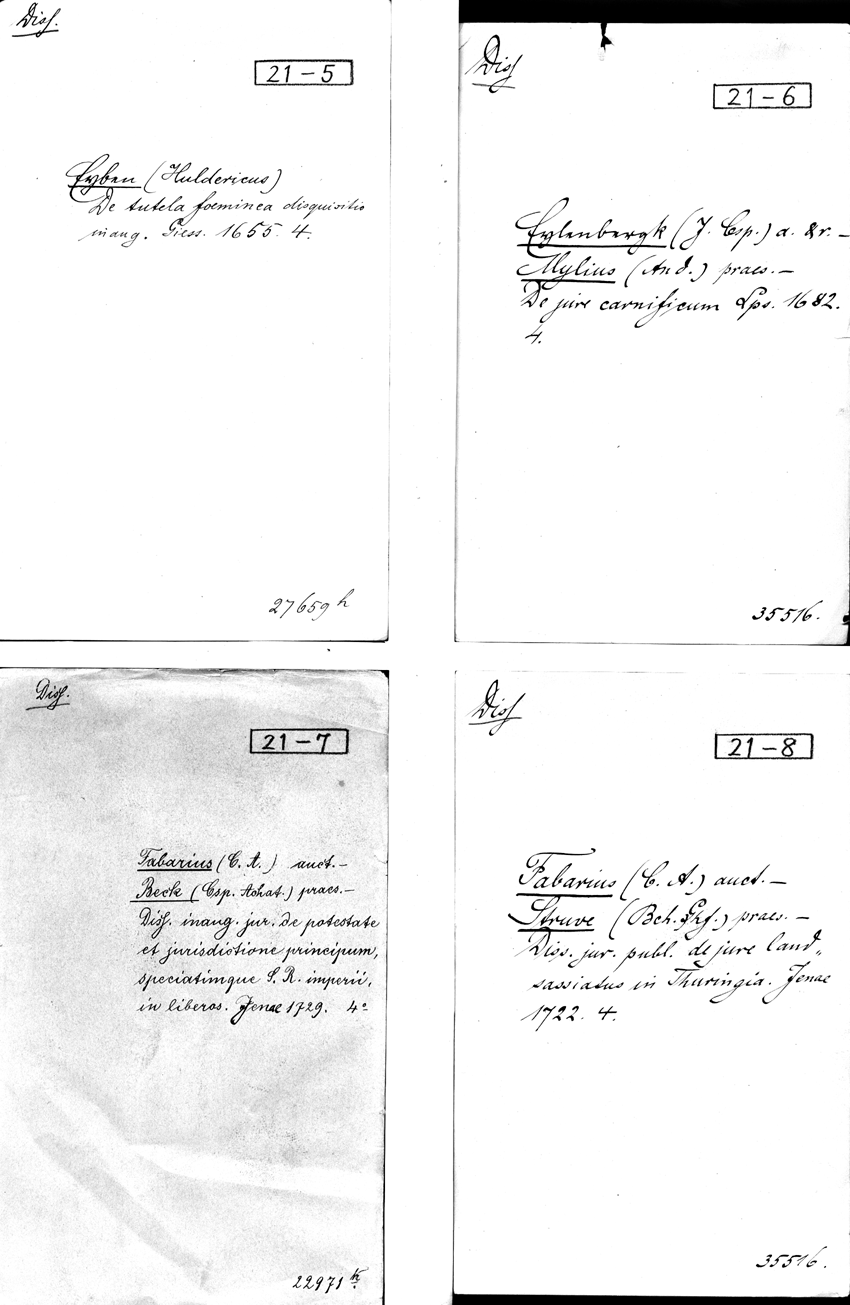 Diss.
21-5
Eyben (Huldericus)
De tutela foeminea disquisitio
inaug. Giess. 1655. 4.
27659 h
Diss
21-6
Eylenbergk (J. Csp.) a. & r. —
Mylius (And.) praes. —
De jure carnificum Lps. 1682.
4.
35516.
Diss.
21-7
Fabarius (C. A.) auct. —
Beck (Csp. Achat.) praes. —
Diss. inaug. jur. de potestate
et jurisdictione principum,
speciatimque S. R. imperii,
in liberos. Jenae 1729. 4°
22971
Diss
21-8
Fabarius (C. A.) auct. —
Struve (Bch. Ghf.) praes. —
Diss. jur. publ. de jure land„
sassiatus in Thuringia. Jenae
1722. 4.
35516.